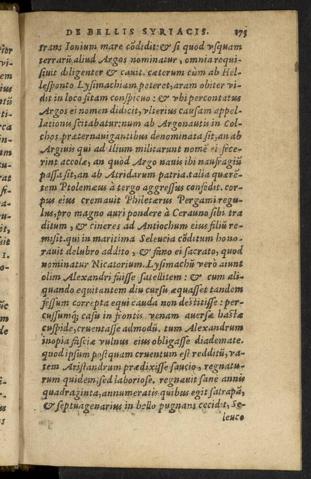 DE BELLIS SYRIACIS. 175
trans Ionium mare cōdidit: & si quod vsquam
terrarū aliud Argos nominatur, omnia requi-
siuit diligenter & cauit. cæterum cùm ab Hel-
lesponto Lysimachiam peteret, aram obiter vi-
dit in loco sitam conspicuo: & vbi percontatus
Argos ei nomen didicit, vlterius causam appel-
lationis scitabatur: num ab Argonautis in Col-
chos præternauigantibus denominata sit, an ab
Argiuis qui ad Ilium militarunt nomē ei fece-
rint accolæ, an quòd Argo nauis ibi naufragiū
passa sit, an ab Atridarum patria. talia quærē-
tem Ptolemæus à tergo aggressus confodit. cor-
pus eius cremauit Philetærus Pergami regu-
lus, pro magno auri pondere à Cerauno sibi tra
ditum, & cineres ad Antiochum eius filiū re-
misit. qui in maritima Seleucia cōditum hono-
rauit delubro addito, & fano ei sacrato, quod
nominatur Nicatorium. Lysimachū verò aiunt
olim Alexandri fuisse satellitem: & cum ali-
quando equitantem diu cursu æquasset tandem
fessum correpta equi cauda non destitisse: per-
cussumq; casu in frontis venam auersæ hastæ
cuspide, cruentasse admodū. tum Alexandrum
inopia fasciæ vulnus eius obligasse diademate.
quod ipsum postquam cruentum est redditū, va-
tem Aristandrum prædixisse saucio, regnatu-
rum quidem, sed laboriose. regnauit sane annis
quadraginta, annumeratis quibus egit satrapā,
& septuagenarius in bello pugnans cecidit, Se-
leuco